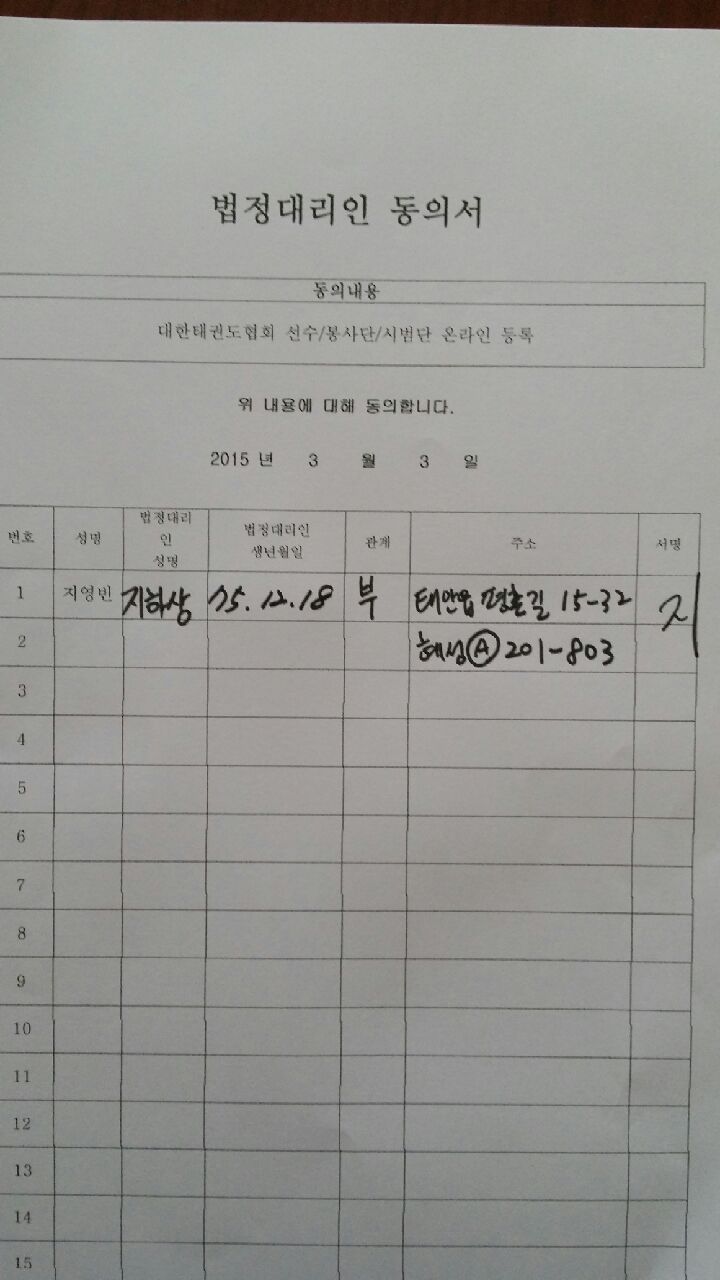 법정대리인 동의서
동의내용
대한태권도협회 선수/봉사단/시범단 온라인 등록
위 내용에 대해 동의합니다.
2015 년 3 월 3 일
번호 성명 법정대리인 성명 법정대리인 생년월일 관계 주소 서명
1 지영빈 지하상 75. 12. 18 부 태안읍 15-32 지
2 혜성Ⓐ 201-803
3
4
5
6
7
8
9
10
11
12
13
14
15